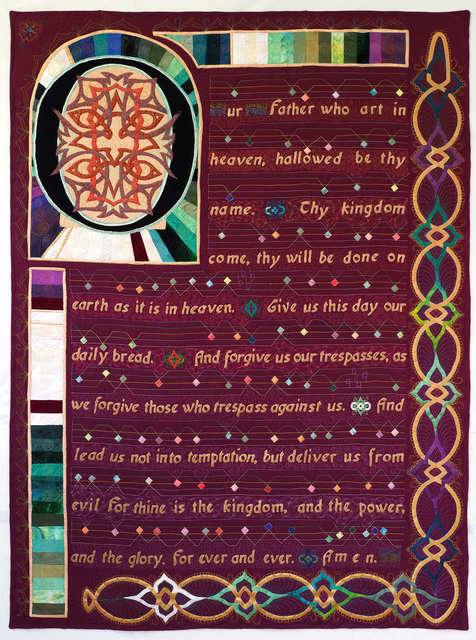 Our Father who art in
heaven, hallowed be thy
name. Thy kingdom
come, thy will be done on
earth as it is in heaven. Give us this day our
daily bread. And forgive us our trespasses, as
we forgive those who trespass against us. And
lead us not into temptation, but deliver us from
evil for thine is the kingdom, and the power,
and the glory. for ever and ever. Amen.